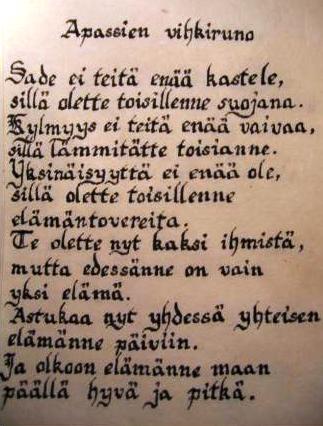 Apassien vihkiruno
Sade ei teitä enää kastele,
sillä olette toisillenne suojana.
Kylmyys ei teitä enää vaivaa,
sillä lämmitätte toisianne.
Yksinäisyyttä ei enää ole,
sillä olette toisillenne
elämäntovereita.
Te olette nyt kaksi ihmistä,
mutta edessänne on vain
yksi elämä.
Astukaa nyt yhdessä yhteisen
elämänne päiviin.
Ja olkoon elämänne maan
päällä hyvä ja pitkä.